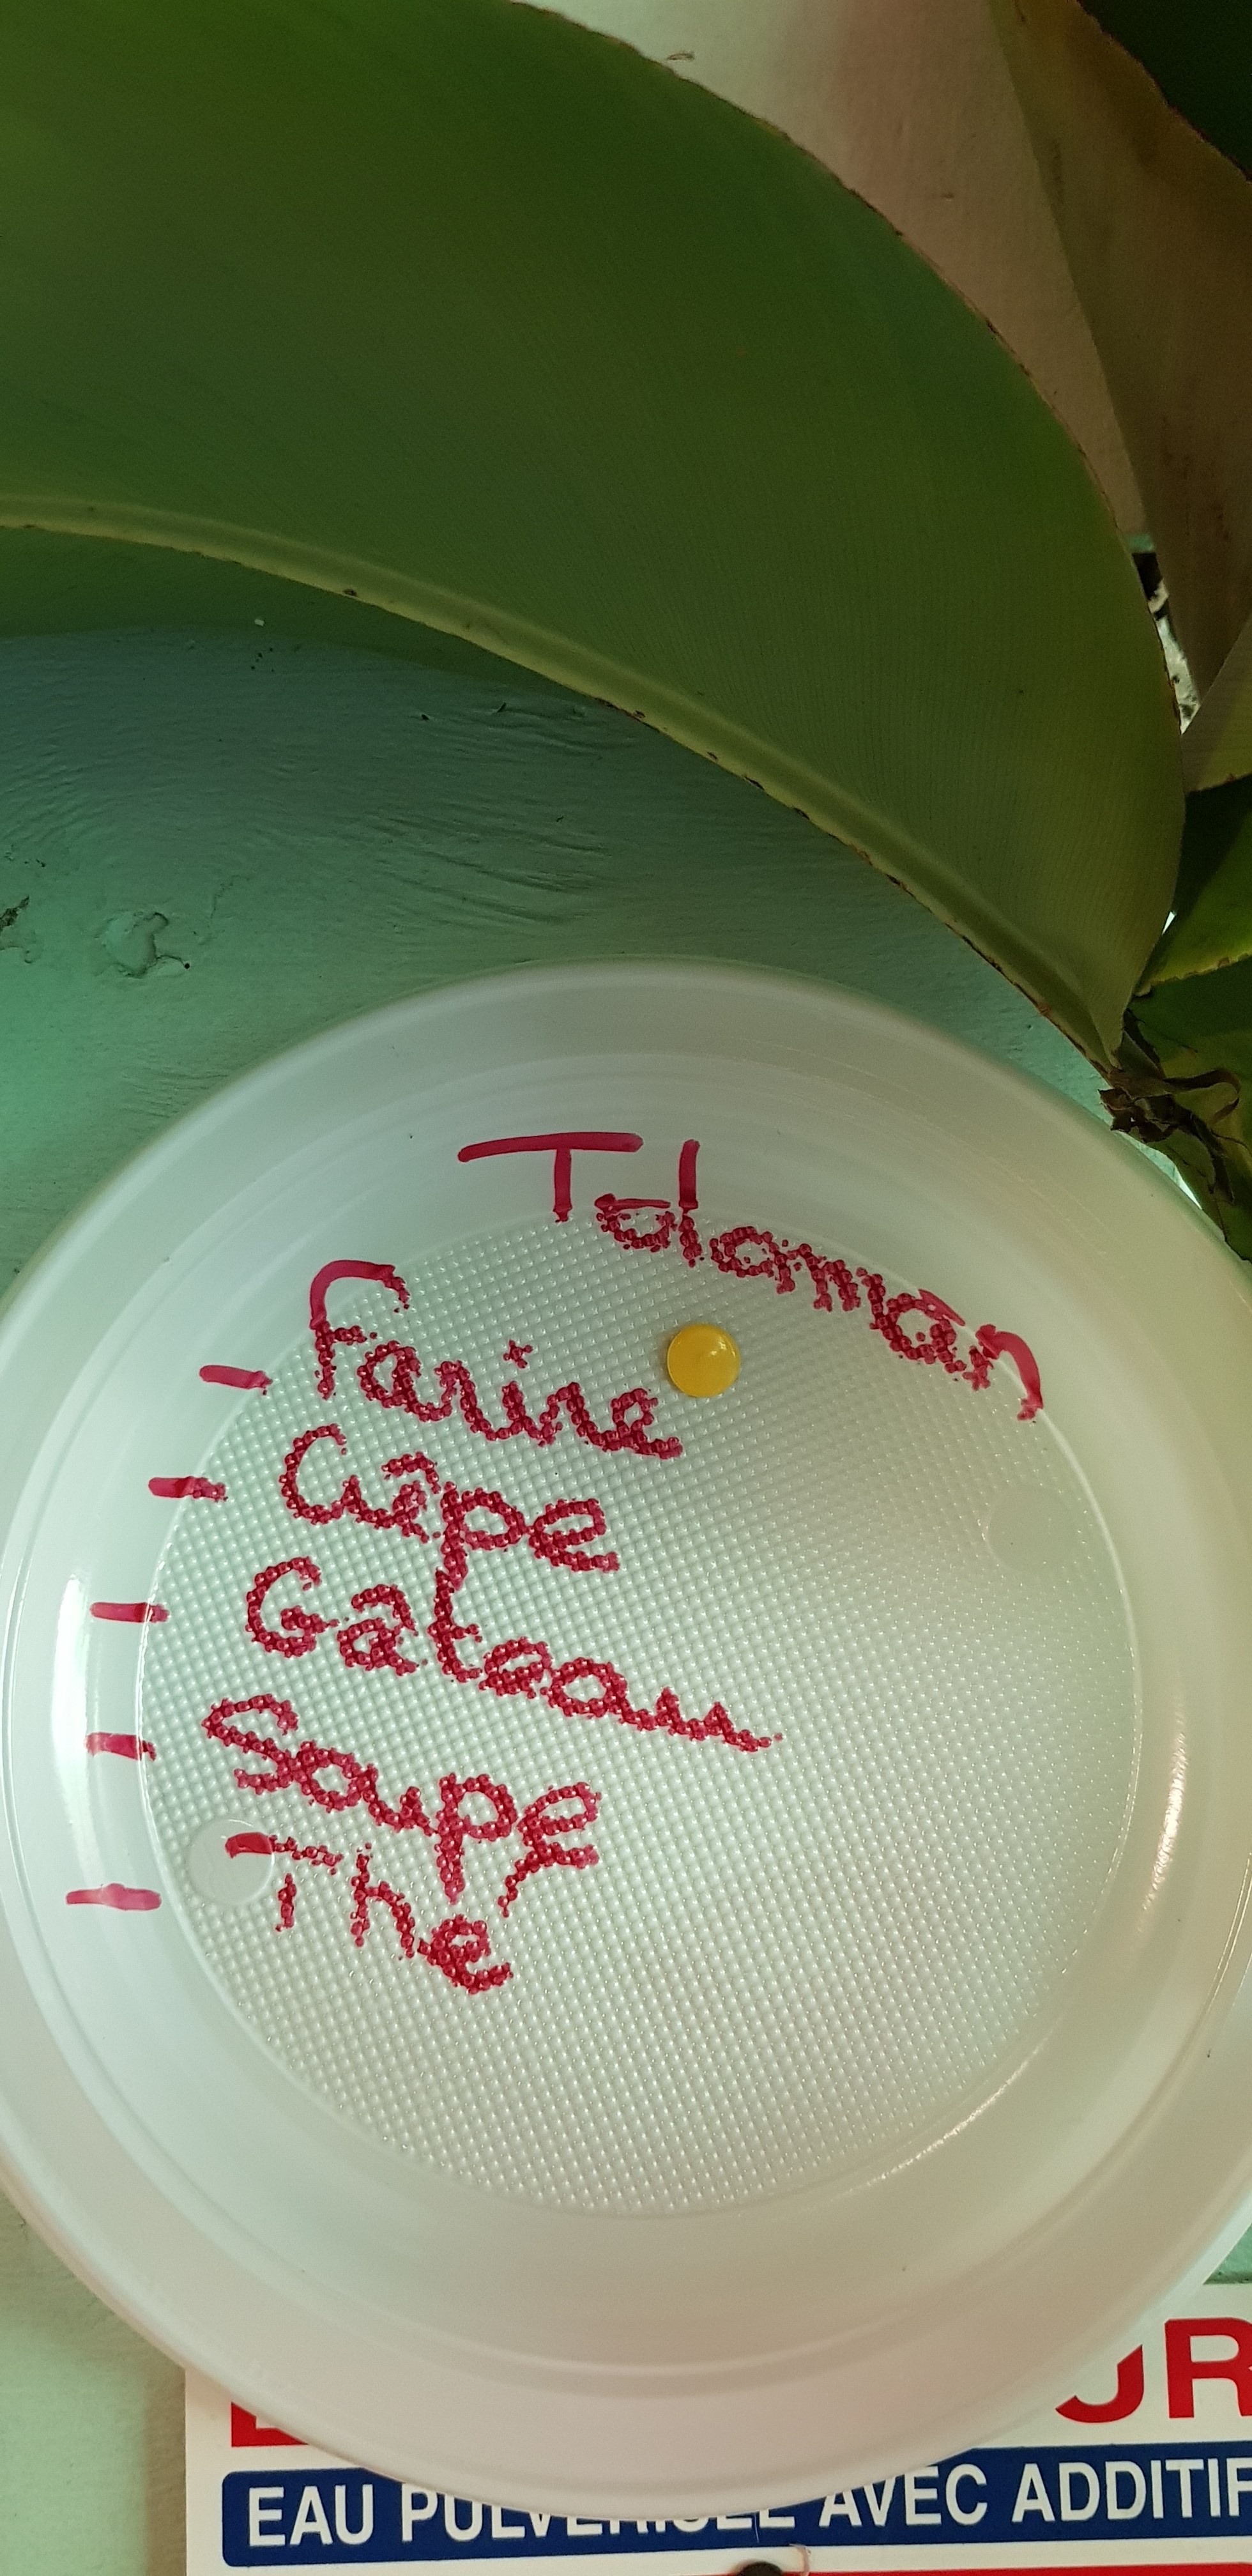 Toloman
- Farine
- Crêpe
- Gateau
- Soupe
- The
EAU PULVERISEE AVEC ADDITIF